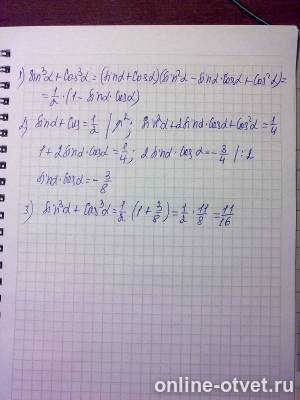 1) sin³α + cos³α = (sinα + cosα)(sin²α - sinα·cosα + cos²α) =
= 1/2 · (1 - sinα·cosα)
2) sinα + cos = 1/2 | n²; sin²α + 2sinα·cosα + cos²α = 1/4
1 + 2sinα·cosα = 1/4; 2sinα·cosα = -3/4 | :2
sinα·cosα = -3/8
3) sin³α + cos³α = 1/2 (1 + 3/8) = 1/2 · 11/8 = 11/16
online-otvet.ru